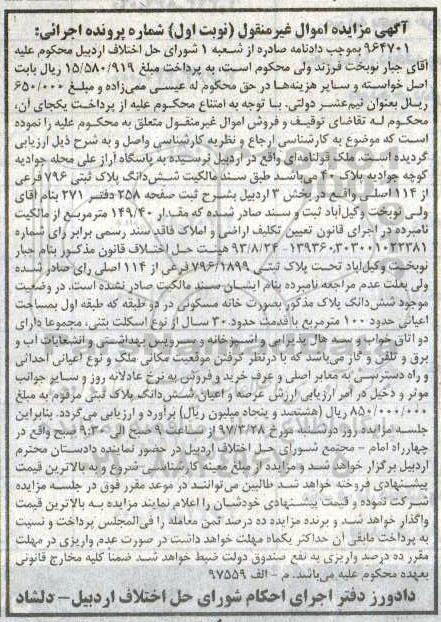 آگهی مزایده اموال غیرمنقول (نوبت اول) شماره پرونده اجرائی:
۹۶۴۷۰۱ بموجب دادنامه صادره از شعبه ۱ شورای حل اختلاف اردبیل محکوم علیه
آقای جبار نوبخت فرزند ولی محکوم است، به پرداخت مبلغ ۱۵/۵۸۰/۹۱۹ ریال بابت
اصل خواسته و سایر هزینه‌ها در حق محکوم له عیسی ممی‌زاده و مبلغ ۶۵۰/۰۰۰
ریال بعنوان نیم‌عشر دولتی. با توجه به امتناع محکوم علیه از پرداخت یکجای آن،
محکوم له تقاضای توقیف و فروش اموال غیرمنقول متعلق به محکوم علیه را نموده
است که موضوع به کارشناسی ارجاع و نظریه کارشناسی واصل و به شرح ذیل ارزیابی
گردیده است. ملک قولنامه‌ای واقع در اردبیل نرسیده به پاسگاه آراز علی محله جوادیه
کوچه جوادیه پلاک ۴۰ می‌باشد طبق سند مالکیت شش‌دانگ پلاک ثبتی ۷۹۶ فرعی
از ۱۱۴ اصلی واقع در بخش ۳ اردبیل بشرح ثبت صفحه ۲۵۸ دفتر ۲۷۱ بنام آقای
ولی نوبخت وکیل‌آباد ثبت و سند صادر شده که مقدار ۱۴۹/۴۰ مترمربع از مالکیت
نامبرده در اجرای قانون تعیین تکلیف اراضی و املاک فاقد سند رسمی برابر رای شماره
۱۳۹۳۶۰۳۰۳۰۰۱۰۲۲۳۸۱-۹۳/۸/۲۴ هیئت حل اختلاف قانون مذکور بنام جبار
نوبخت وکیل‌آباد تحت پلاک ثبتی ۷۹۶/۱۸۹۹ فرعی از ۱۱۴ اصلی رای صادر شده
ولی بعلت عدم مراجعه نامبرده بنام ایشان سند مالکیت صادر نشده است. در وضعیت
موجود شش‌دانگ پلاک مذکور بصورت خانه مسکونی در دو طبقه که طبقه اول بمساحت
اعیانی حدود ۱۰۰ مترمربع با قدمت حدود ۳۰ سال از نوع اسکلت بتنی، مجموعا دارای
دو اتاق خواب و سه هال پذیرایی و آشپزخانه و سرویس بهداشتی و انشعابات آب و
برق و تلفن و گاز می‌باشد که با درنظر گرفتن موقعیت مکانی ملک و نوع اعیانی احداثی
و راه دسترسی به معابر اصلی و عرف خرید و فروش به نرخ عادلانه روز و سایر جوانب
موثر و دخیل در امر ارزیابی ارزش عرصه و اعیان شش‌دانگ پلاک ثبتی مرقوم به مبلغ
۸۵۰/۰۰۰/۰۰۰ ریال (هشتصد و پنجاه میلیون ریال) برآورد و ارزیابی می‌گردد. بنابراین
جلسه مزایده روز دوشنبه مورخ ۹۷/۳/۲۸ از ساعت ۹ صبح الی ۹:۳۰ صبح واقع در
چهارراه امام - مجتمع شورای حل اختلاف اردبیل در حضور نماینده دادستان محترم
اردبیل برگزار خواهد شد و مزایده از مبلغ معینه کارشناسی شروع و به بالاترین قیمت
پیشنهادی فروخته خواهد شد طالبین می‌توانند در موعد مقرر فوق در جلسه مزایده
شرکت نموده و قیمت پیشنهادی خودشان را اعلام نمایند مزایده به بالاترین قیمت
واگذار خواهد شد و برنده مزایده ده درصد ثمن معامله را فی‌المجلس پرداخت و نسبت
به پرداخت مابقی آن حداکثر یکماه مهلت خواهد داشت در صورت عدم واریزی در مهلت
مقرر ده درصد واریزی به نفع صندوق دولت ضبط خواهد شد ضمنا کلیه مخارج قانونی
بعهده محکوم علیه می‌باشد. م - الف ۹۷۵۵۹
دادورز دفتر اجرای احکام شورای حل اختلاف اردبیل - دلشاد